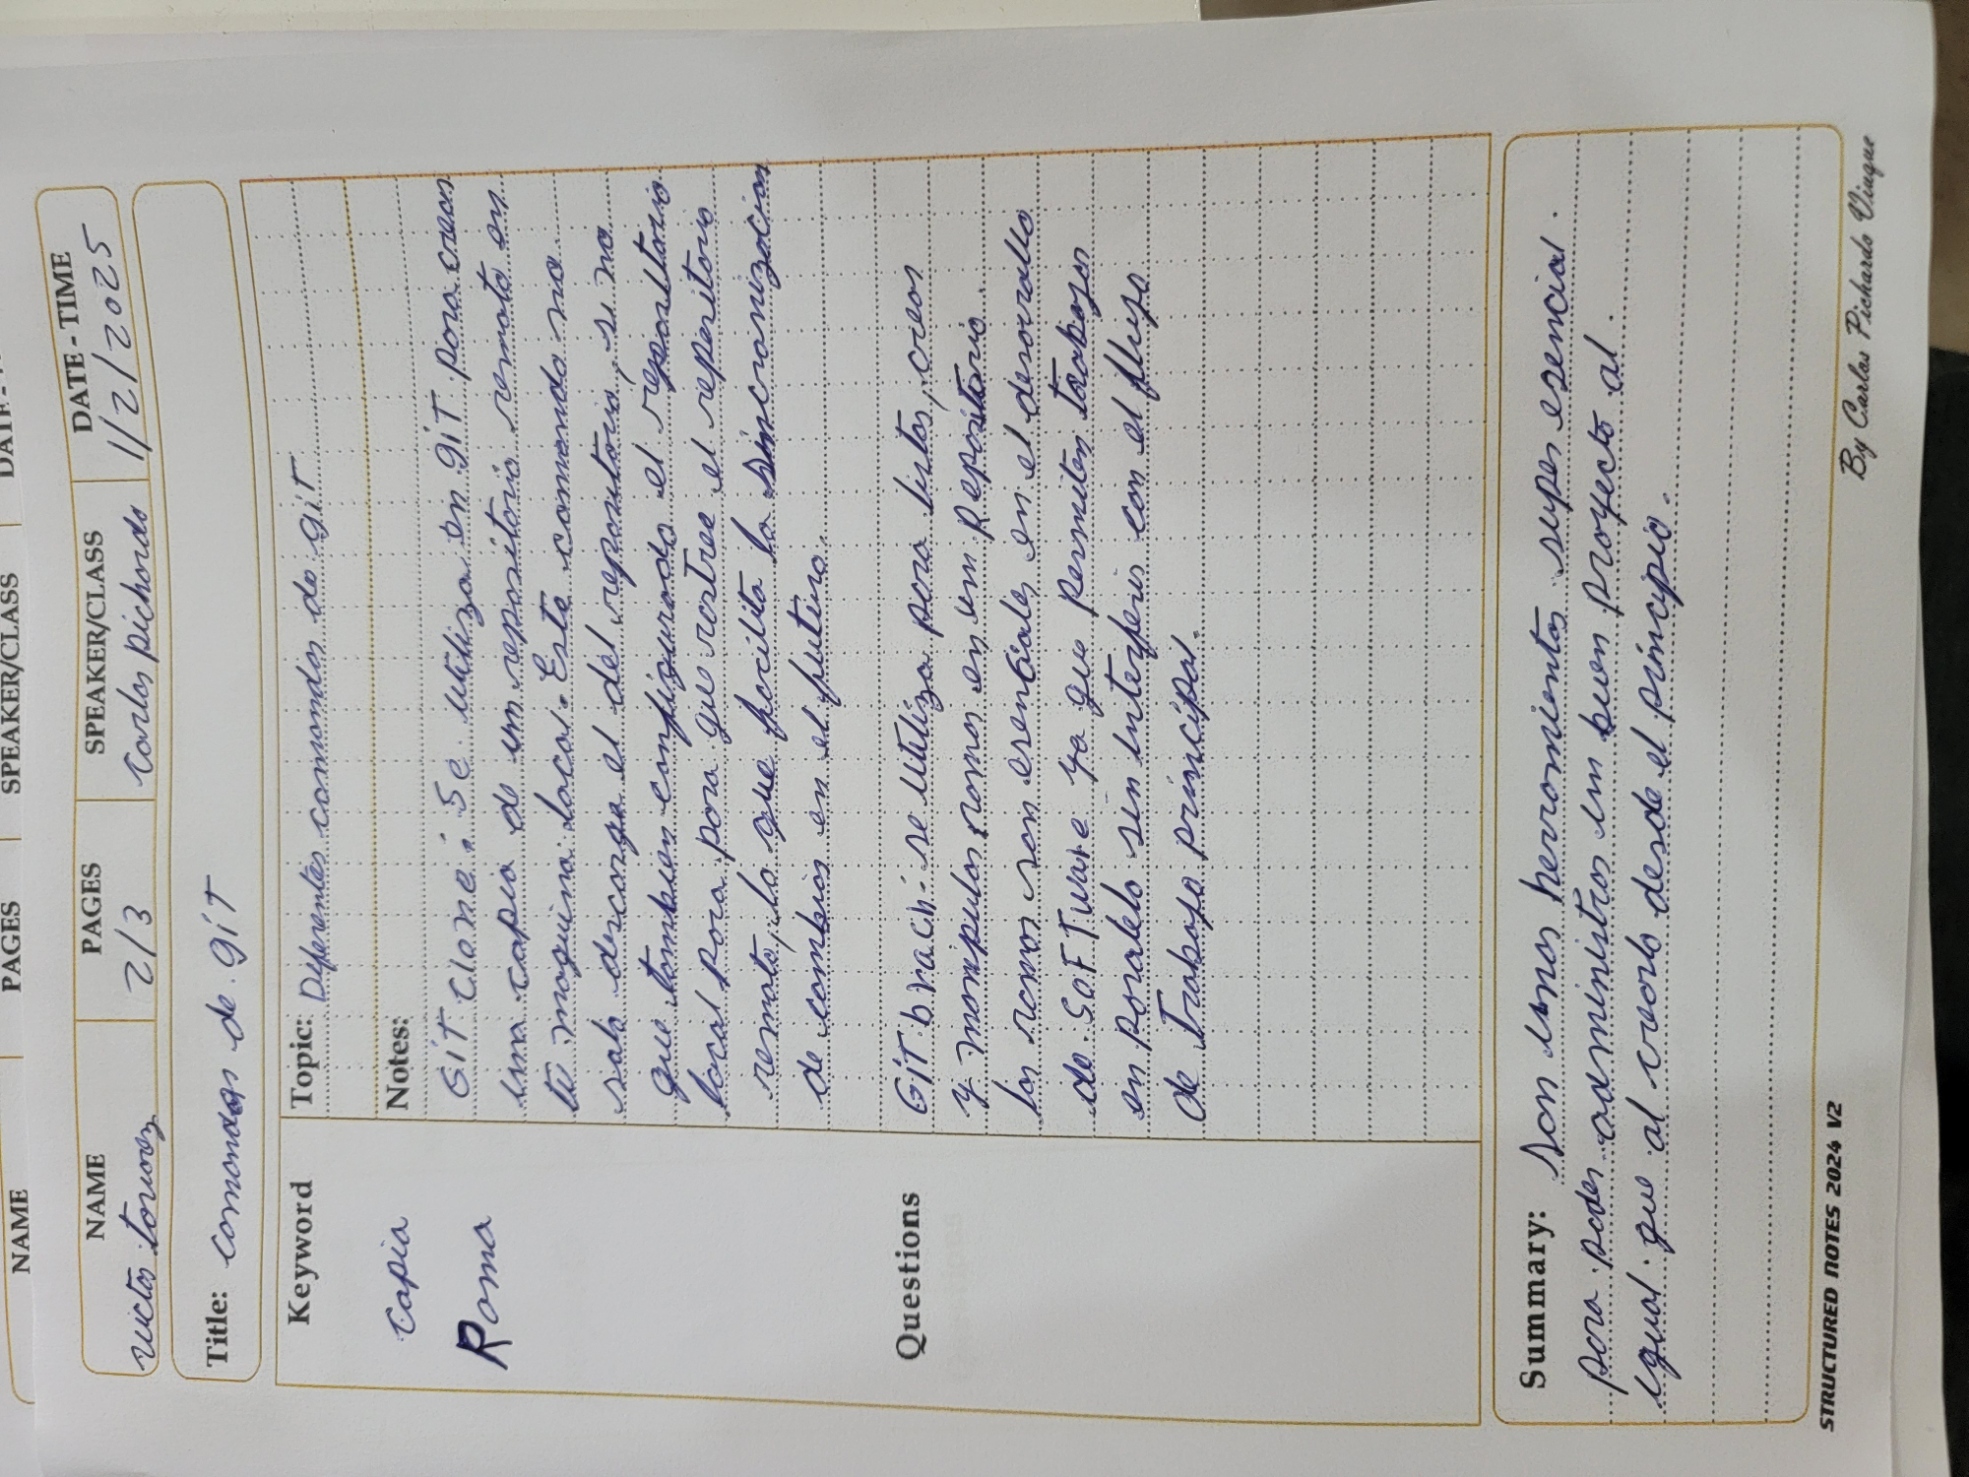 NAME PAGES SPEAKER/CLASS
NAME PAGES SPEAKER/CLASS DATE - TIME
2/3 Carlos Pichardo 1/2/2025
Title: comandos de git
Keyword Topic: Diferentes comandos de git
copia Notes:
Rama GiT Clone: Se utiliza en giT para crear
una copia de un repositorio remoto en
tu maquina local. Este comando no
solo descarga el del repositorio, si no
que tambien configurado el repositorio
local para para que rastree el repositorio
remoto, lo que facilita la sincronizacion
de cambios en el futuro.
Questions GiT brach: se utiliza para listar, crear
y manipular ramas en un Repositorio.
las ramas son esenciales en el desarrollo
de SOFTware ya que permiten trabajar
en paralelo sin interferir con el flujo
de trabajo principal.
Summary: son unas herramientas super esencial.
para poder administrar un buen proyecto al
igual que al crearlo desde el principio.
STRUCTURED NOTES 2024 V2
By Carlos Pichardo Viuque